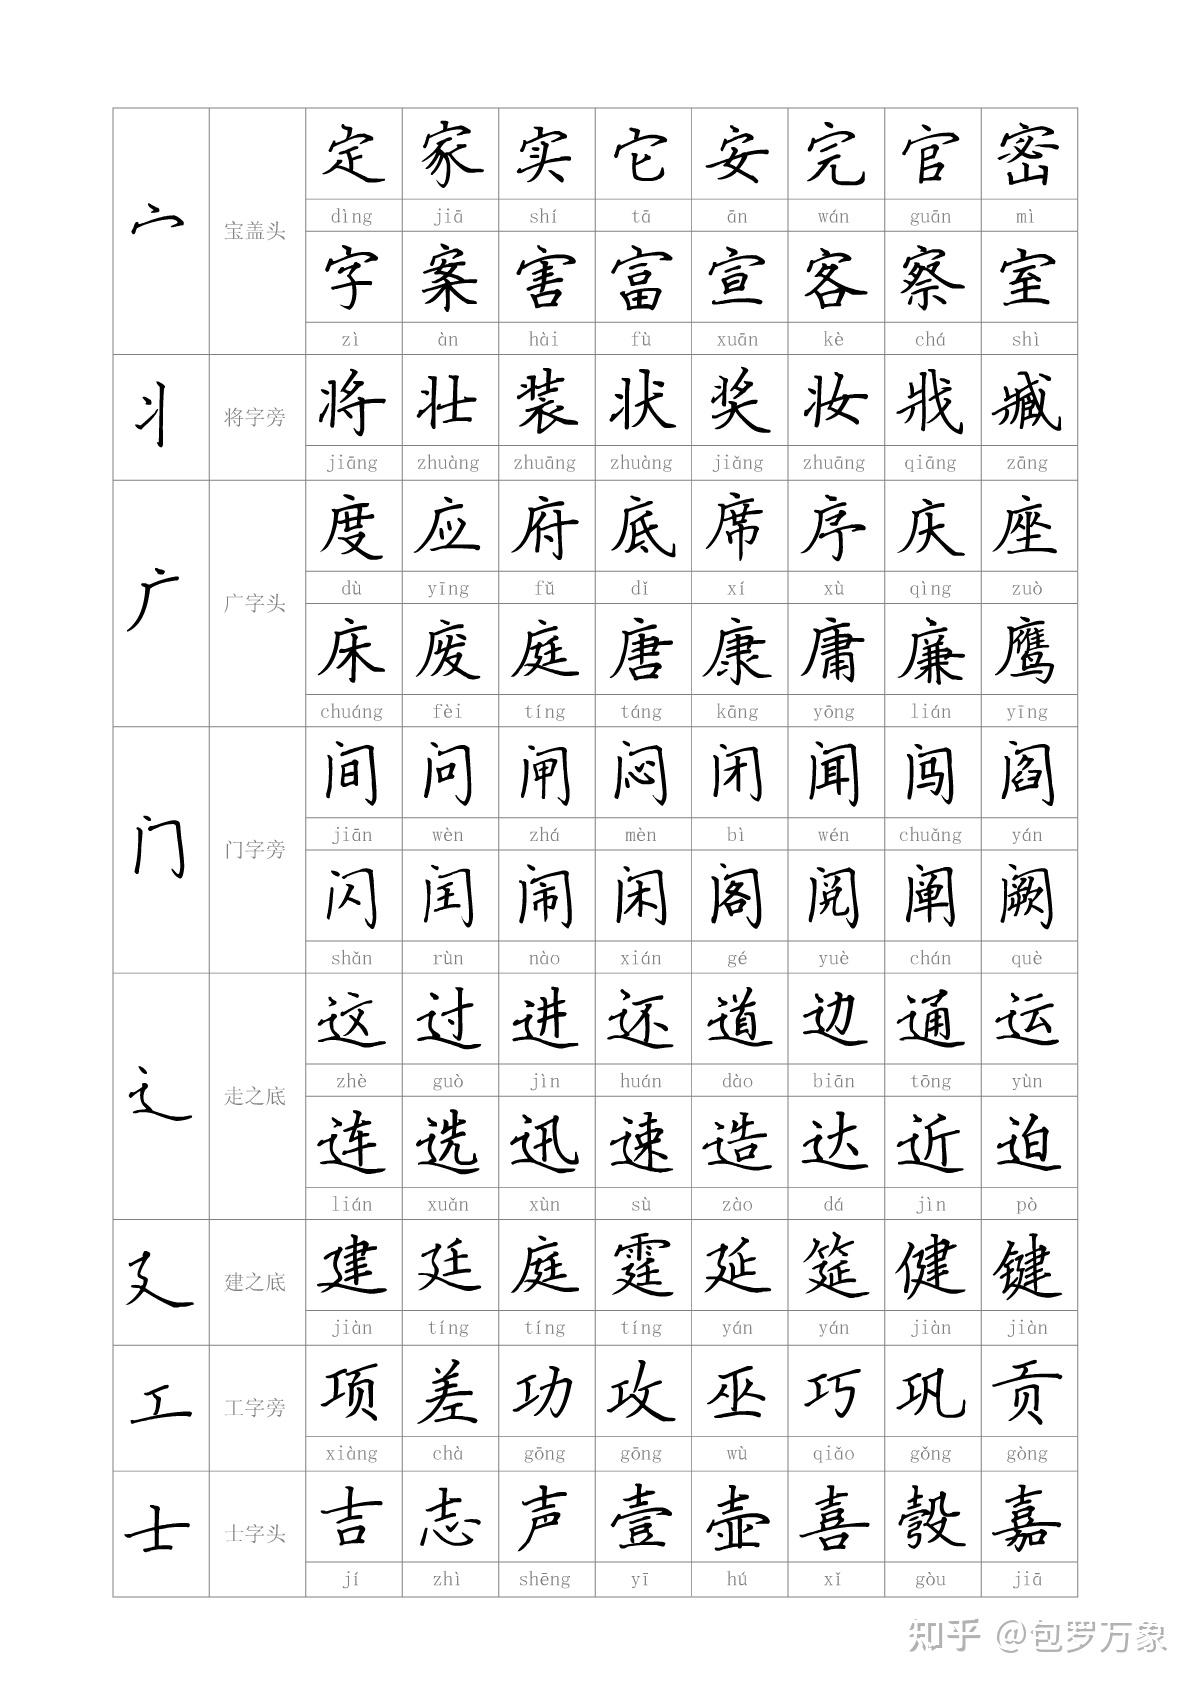 定 家 实 它 安 完 官 密
dìng jiā shí tā ān wán guān mì
宀 宝盖头
字 案 害 富 宣 客 察 室
zì àn hài fù xuān kè chá shì
将 壮 装 状 奖 妆 戕 臧
丬 将字旁
jiāng zhuàng zhuāng zhuàng jiǎng zhuāng qiāng zāng
度 应 府 底 席 序 庆 座
dù yīng fǔ dǐ xí xù qìng zuò
广 广字头
床 废 庭 唐 康 庸 廉 鹰
chuáng fèi tíng táng kāng yōng lián yīng
间 问 闸 闷 闭 闻 闯 阎
jiān wèn zhá mèn bì wén chuǎng yán
门 门字旁
闪 闰 闹 闲 阁 阅 阐 阙
shǎn rùn nào xián gé yuè chán què
这 过 进 还 道 边 通 运
zhè guò jìn huán dào biān tōng yùn
辶 走之底
连 选 迅 速 造 达 近 迫
lián xuǎn xùn sù zào dá jìn pò
建 廷 庭 霆 延 筵 健 键
廴 建之底
jiàn tíng tíng tíng yán yán jiàn jiàn
项 差 功 攻 巫 巧 巩 贡
工 工字旁
xiàng chà gōng gōng wù qiǎo gǒng gòng
吉 志 声 壹 壶 喜 彀 嘉
士 士字头
jí zhì shēng yī hú xǐ gòu jiā
知乎 @包罗万象